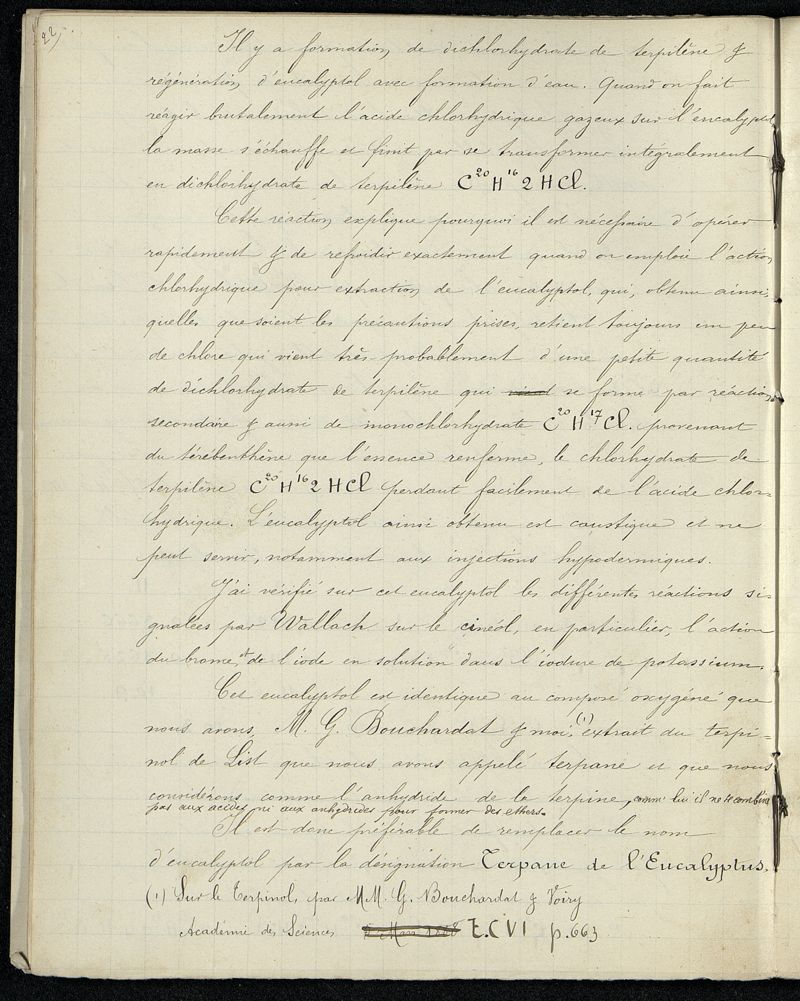 22)
Il y a formation de dichlorhydrate de terpilène &
régénération d'eucalyptol avec formation d'eau. Quand on fait
réagir brutalement l'acide chlorhydrique gazeux sur l'eucalyptol
la masse s'échauffe et finit par se transformer intégralement
en dichlorhydrate de terpilène C²⁰H¹⁶2HCl.
Cette réaction explique pourquoi il est nécessaire d'opérer
rapidement & de refroidir exactement quand on emploie l'action
chlorhydrique pour extraction de l'eucalyptol, qui, obtenu ainsi,
quelles que soient les précautions prises, retient toujours un peu
de chlore qui vient très probablement d'une petite quantité
de dichlorhydrate de terpilène qui se forme par réaction
secondaire & aussi de monochlorhydrate C²⁰H¹⁷Cl. provenant
du térébenthène que l'essence renferme, le chlorhydrate de
terpilène C²⁰H¹⁶2HCl perdant facilement de l'acide chlor-
hydrique. L'eucalyptol ainsi obtenu est caustique et ne
peut servir, notamment aux injections hypodermiques.
J'ai vérifié sur cet eucalyptol les différentes réactions si-
gnalées par Wallach sur le cinéol, en particulier, l'action
du brome, et de l'iode en solution dans l'iodure de potassium.
Cet eucalyptol est identique au composé oxygéné que
nous avons, M. G. Bouchardat & moi,(1) extrait du terpi-
nol de List que nous avons appelé terpane et que nous
considérons comme l'anhydride de la terpine, comme lui il ne se combine
pas aux acides ni aux anhydrides pour former des ethers.
Il est donc préférable de remplacer le nom
d'eucalyptol par la désignation Terpane de l'Eucalyptus.
(1) Sur le Terpinol, par MM. G. Bouchardat & Voiry
Académie des Sciences T.CVI p.663